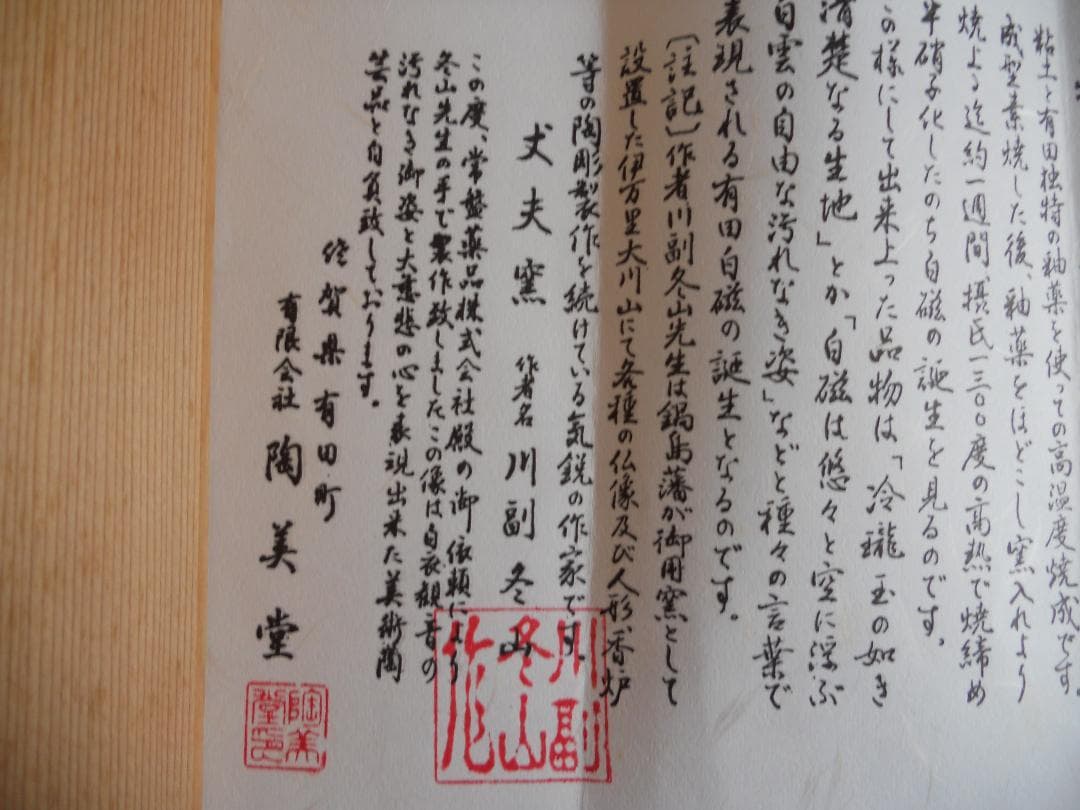 粘土と有田独特の釉薬を使っての高温度焼成です
成型素焼した後、釉薬をほどこし窯入れより
焼上る迄約一週間摂氏一三〇〇度の高熱で焼締め
半硝子化したのち白磁の誕生を見るのです。
この様にして出来上った品物は、「冷瓏玉の如き
清楚なる生地」とか「白磁は悠々と空に浮ぶ
白雲の自由な汚れなき姿」などと種々の言葉で
表現される有田白磁の誕生となるのです。
〔註記〕作者川副冬山先生は鍋島藩が御用窯として
設置した伊万里大川山にて各種の仏像及び人形、香炉
等の陶彫製作を続けている気鋭の作家です。
丈夫窯 作者名 川副冬山
この度、常盤薬品株式会社殿の御依頼により
冬山先生の手で製作致しましたこの像は白衣観音の
汚れなき御姿と大慈悲の心を表現出来た美術陶
芸品と自負致しております。
佐賀県有田町
有限会社 陶美堂
川副
冬山
作
陶美
堂印